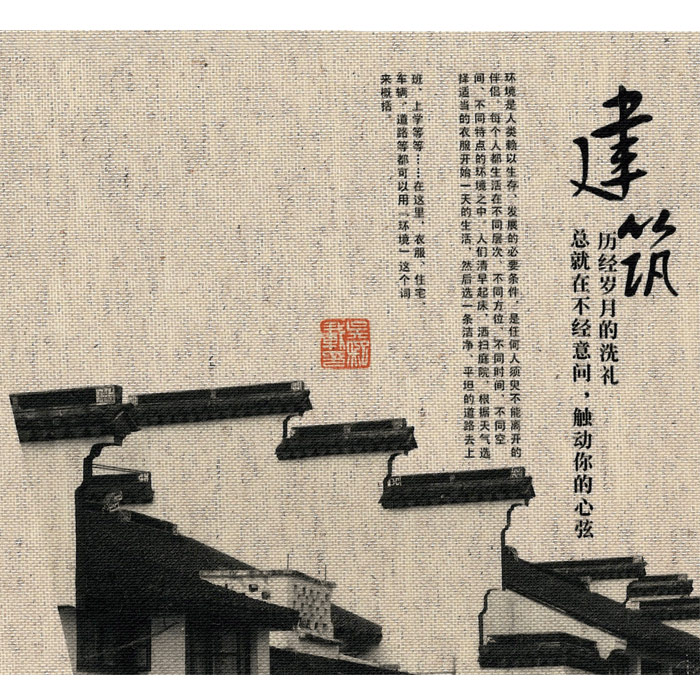 建筑
历经岁月的洗礼
总就在不经意间，触动你的心弦
环境是人类赖以生存、发展的必要条件，是任何人须臾不能离开的
伴侣。每个人都生活在不同层次、不同方位、不同时间、不同空
间、不同特点的环境之中。人们清早起床，洒扫庭院，根据天气选
择适当的衣服开始一天的生活，然后选一条洁净、平坦的道路去上
班、上学等等……在这里，衣服、住宅、
车辆、道路等都可以用「环境」这个词
来概括。